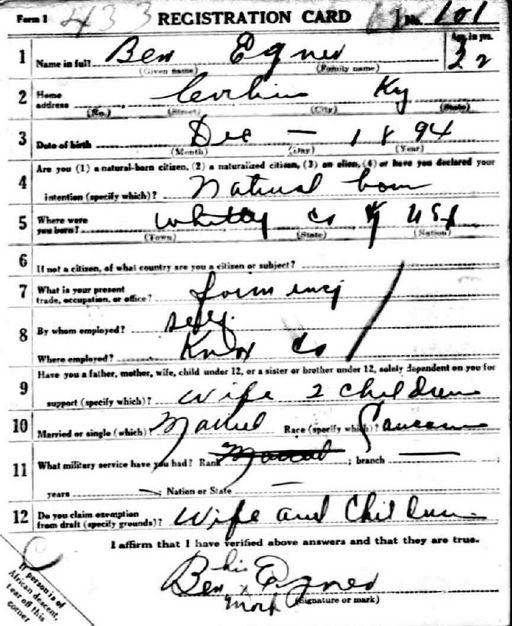 Form 1 433 REGISTRATION CARD No. 101
1 Name in full Ben Egner Age, in yrs. 22
(Given name) (Family name)
2 Home address Corbin Ky
(No.) (Street) (City) (State)
3 Date of birth Dec — 1894
(Month) (Day) (Year)
Are you (1) a natural-born citizen, (2) a naturalized citizen, (3) an alien, (4) or have you declared your
4 intention (specify which)? Natural born
5 Where were you born? Whitley Co Ky USA
(Town) (State) (Nation)
6 If not a citizen, of what country are you a citizen or subject?
7 What is your present trade, occupation, or office? farming
8 By whom employed? self
Where employed? Knox Co
Have you a father, mother, wife, child under 12, or a sister or brother under 12, solely dependent on you for
9 support (specify which)? Wife 2 Children
10 Married or single (which)? Married Race (specify which)? Caucasian
11 What military service have you had? Rank ; branch —
years — ; Nation or State —
12 Do you claim exemption from draft (specify grounds)? Wife and Children
I affirm that I have verified above answers and that they are true.
his
Ben x Egner
mark
(Signature or mark)
If person is of
African descent,
tear off this
corner